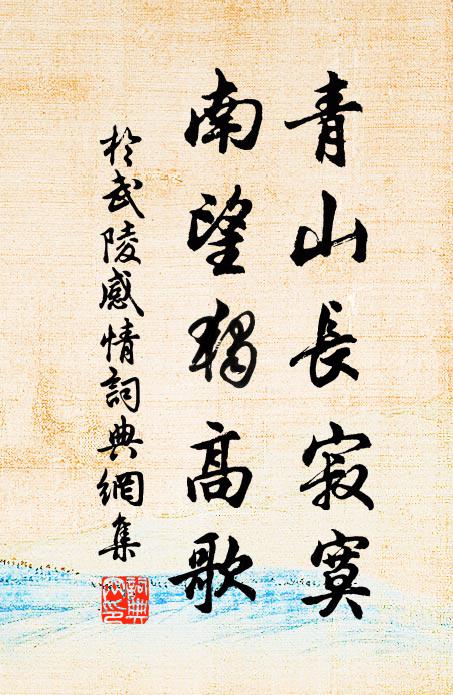 青山長寂寞
南望獨高歌
於武陵感情詞典網集